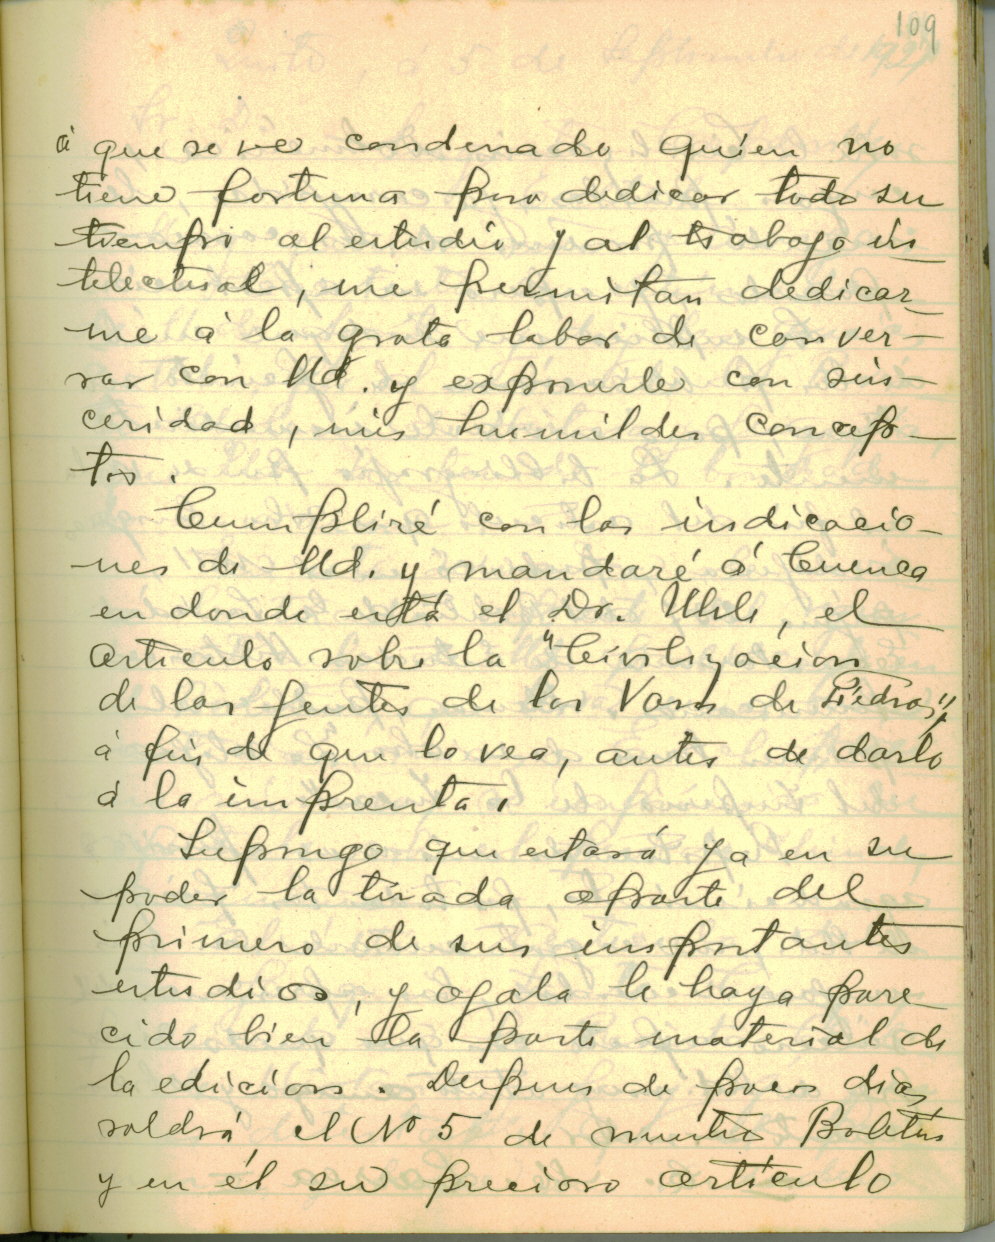 109
á que se ve condenado quien no
tiene fortuna para dedicar todo su
tiempo al estudio y al trabajo in-
telectual, me permitan dedicar-
me á la grata labor de conver-
sar con Ud. y exponerle con sin-
ceridad, mis humildes concep-
tos.
Cumpliré con las indicacio-
nes de Ud. y mandaré á Cuenca
en donde está el Dr. Uhle, el
articulo sobre la "Civilizacion
de las gentes de los Vasos de Piedra",
á fin de que lo vea, antes de darlo
á la imprenta.
Supongo que estará ya en su
poder la tirada aparte del
primero de sus importantes
estudios, y ojala le haya pare
cido bien la parte material de
la edicion. Despues de pocos dias
saldrá el No 5 de nuestro Boletin
y en él su precioso articulo